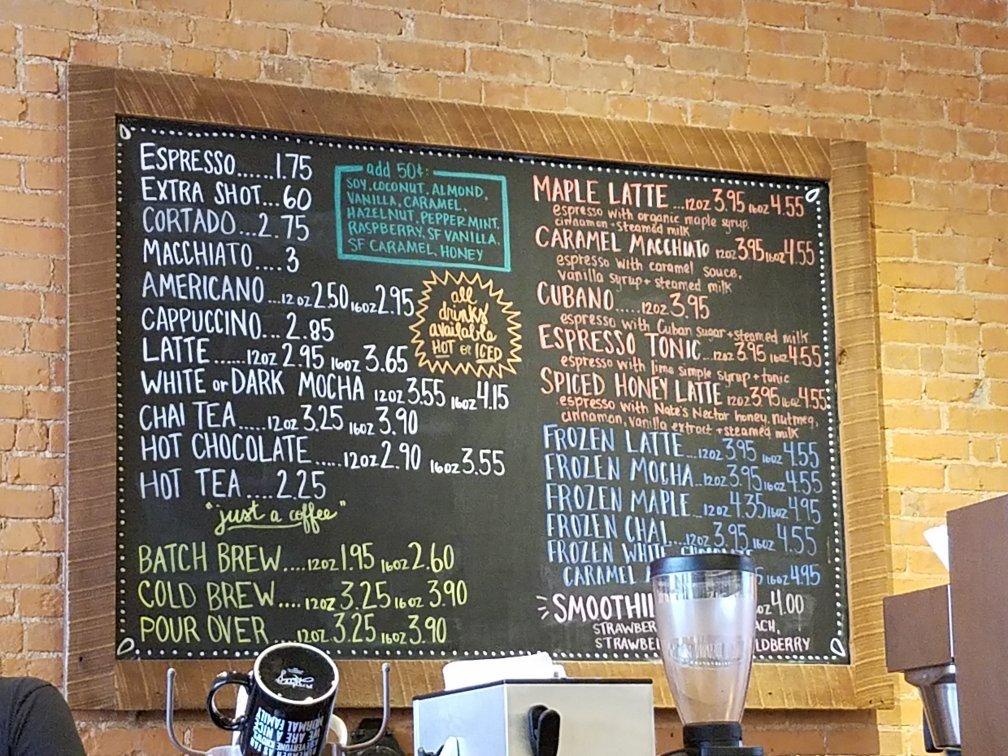 ESPRESSO......1.75
EXTRA SHOT...60
CORTADO...2.75
MACCHIATO....3
AMERICANO...12oz2.50 16oz2.95
CAPPUCCINO...2.85
LATTE......12oz 2.95 16oz 3.65
WHITE or DARK MOCHA 12oz3.55 16oz4.15
CHAI TEA....12oz3.25 16oz3.90
HOT CHOCOLATE.....12oz2.90 16oz3.55
HOT TEA....2.25
"just a coffee"
BATCH BREW....12oz1.95 16oz2.60
COLD BREW....12oz3.25 16oz3.90
POUR OVER....12oz3.25 16oz3.90
add 50¢:
SOY, COCONUT, ALMOND,
VANILLA, CARAMEL,
HAZELNUT, PEPPERMINT,
RASPBERRY, SF VANILLA,
SF CARAMEL, HONEY
all
drinks
available
HOT or ICED
MAPLE LATTE...12oz3.95 16oz4.55
espresso with organic maple syrup,
cinnamon + steamed milk
CARAMEL MACCHIATO 12oz3.95 16oz4.55
espresso with caramel sauce,
vanilla syrup + steamed milk
CUBANO.....12oz3.95
espresso with Cuban sugar + steamed milk
ESPRESSO TONIC...12oz3.95 16oz4.55
espresso with lime simple syrup + tonic
SPICED HONEY LATTE 12oz3.95 16oz4.55
espresso with Nate's Nectar honey, nutmeg,
cinnamon, vanilla extract + steamed milk
FROZEN LATTE...12oz3.95 16oz4.55
FROZEN MOCHA...12oz3.95 16oz4.55
FROZEN MAPLE...12oz4.35 16oz4.95
FROZEN CHAI....12oz3.95 16oz4.55
FROZEN
CARAMEL 4.95
4.00
WE ARE A NICE
NORMAL FAMILY